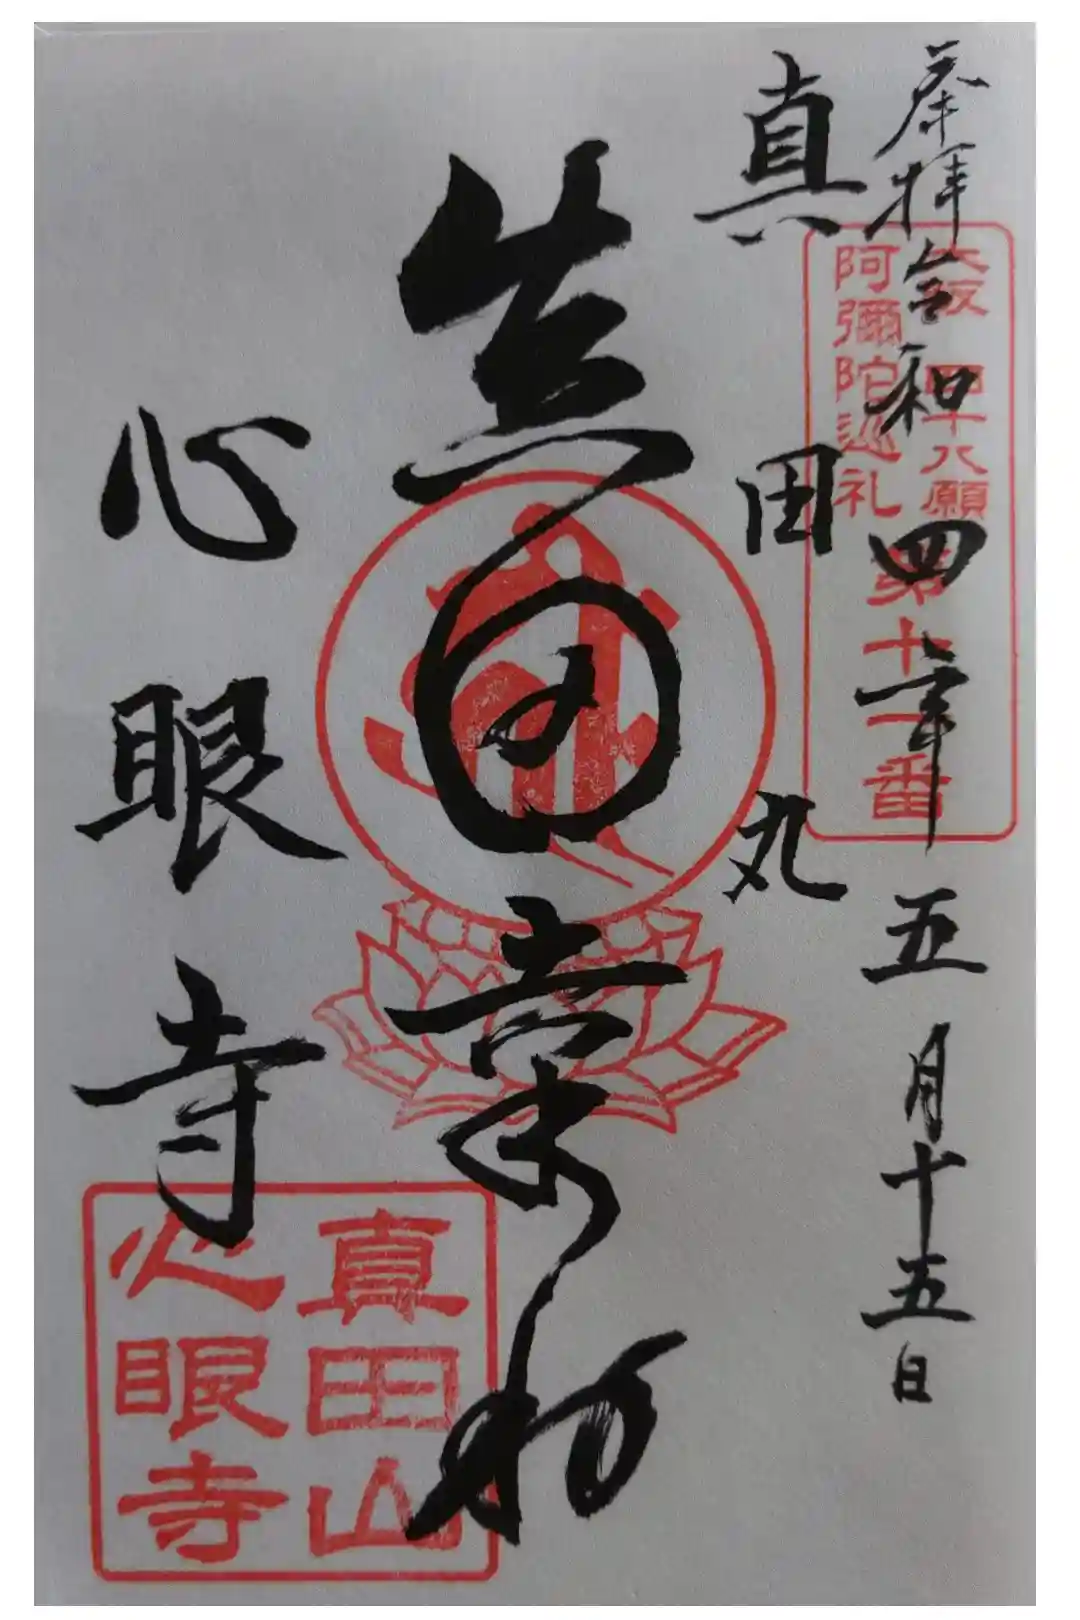 奉拝 令和四年五月十五日
大阪 四十八願
阿彌陀巡礼
第十一番
真田丸
真田幸村
心眼寺
真田山
心眼寺